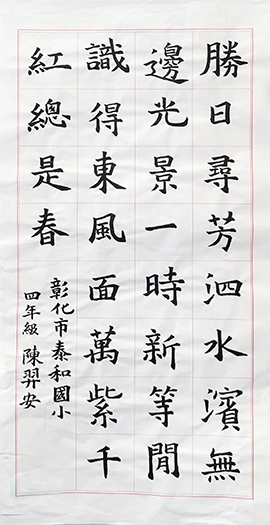 勝日尋芳泗水濱無
邊光景一時新等閒
識得東風面萬紫千
紅總是春
彰化市泰和國小
四年級 陳羿安